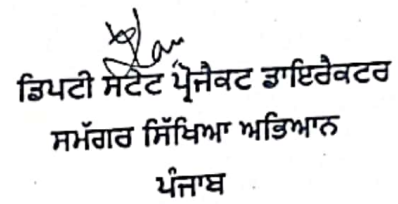 ਡਿਪਟੀ ਸਟੇਟ ਪ੍ਰੋਜੈਕਟ ਡਾਇਰੈਕਟਰ
ਸਮੱਗਰ ਸਿੱਖਿਆ ਅਭਿਆਨ
ਪੰਜਾਬ